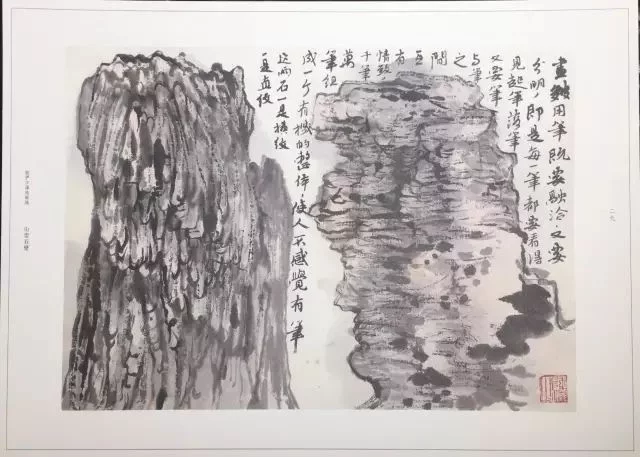 畫皴用筆既要融洽又要
分明，即是每一筆都要看得
見起筆落筆
又要筆
与筆
之
間
互
有
情致
千筆
萬
筆組
成一个有機的整体使人不感覺有筆
这兩石一是橫皴
一是直皴
山雲石壁
二九